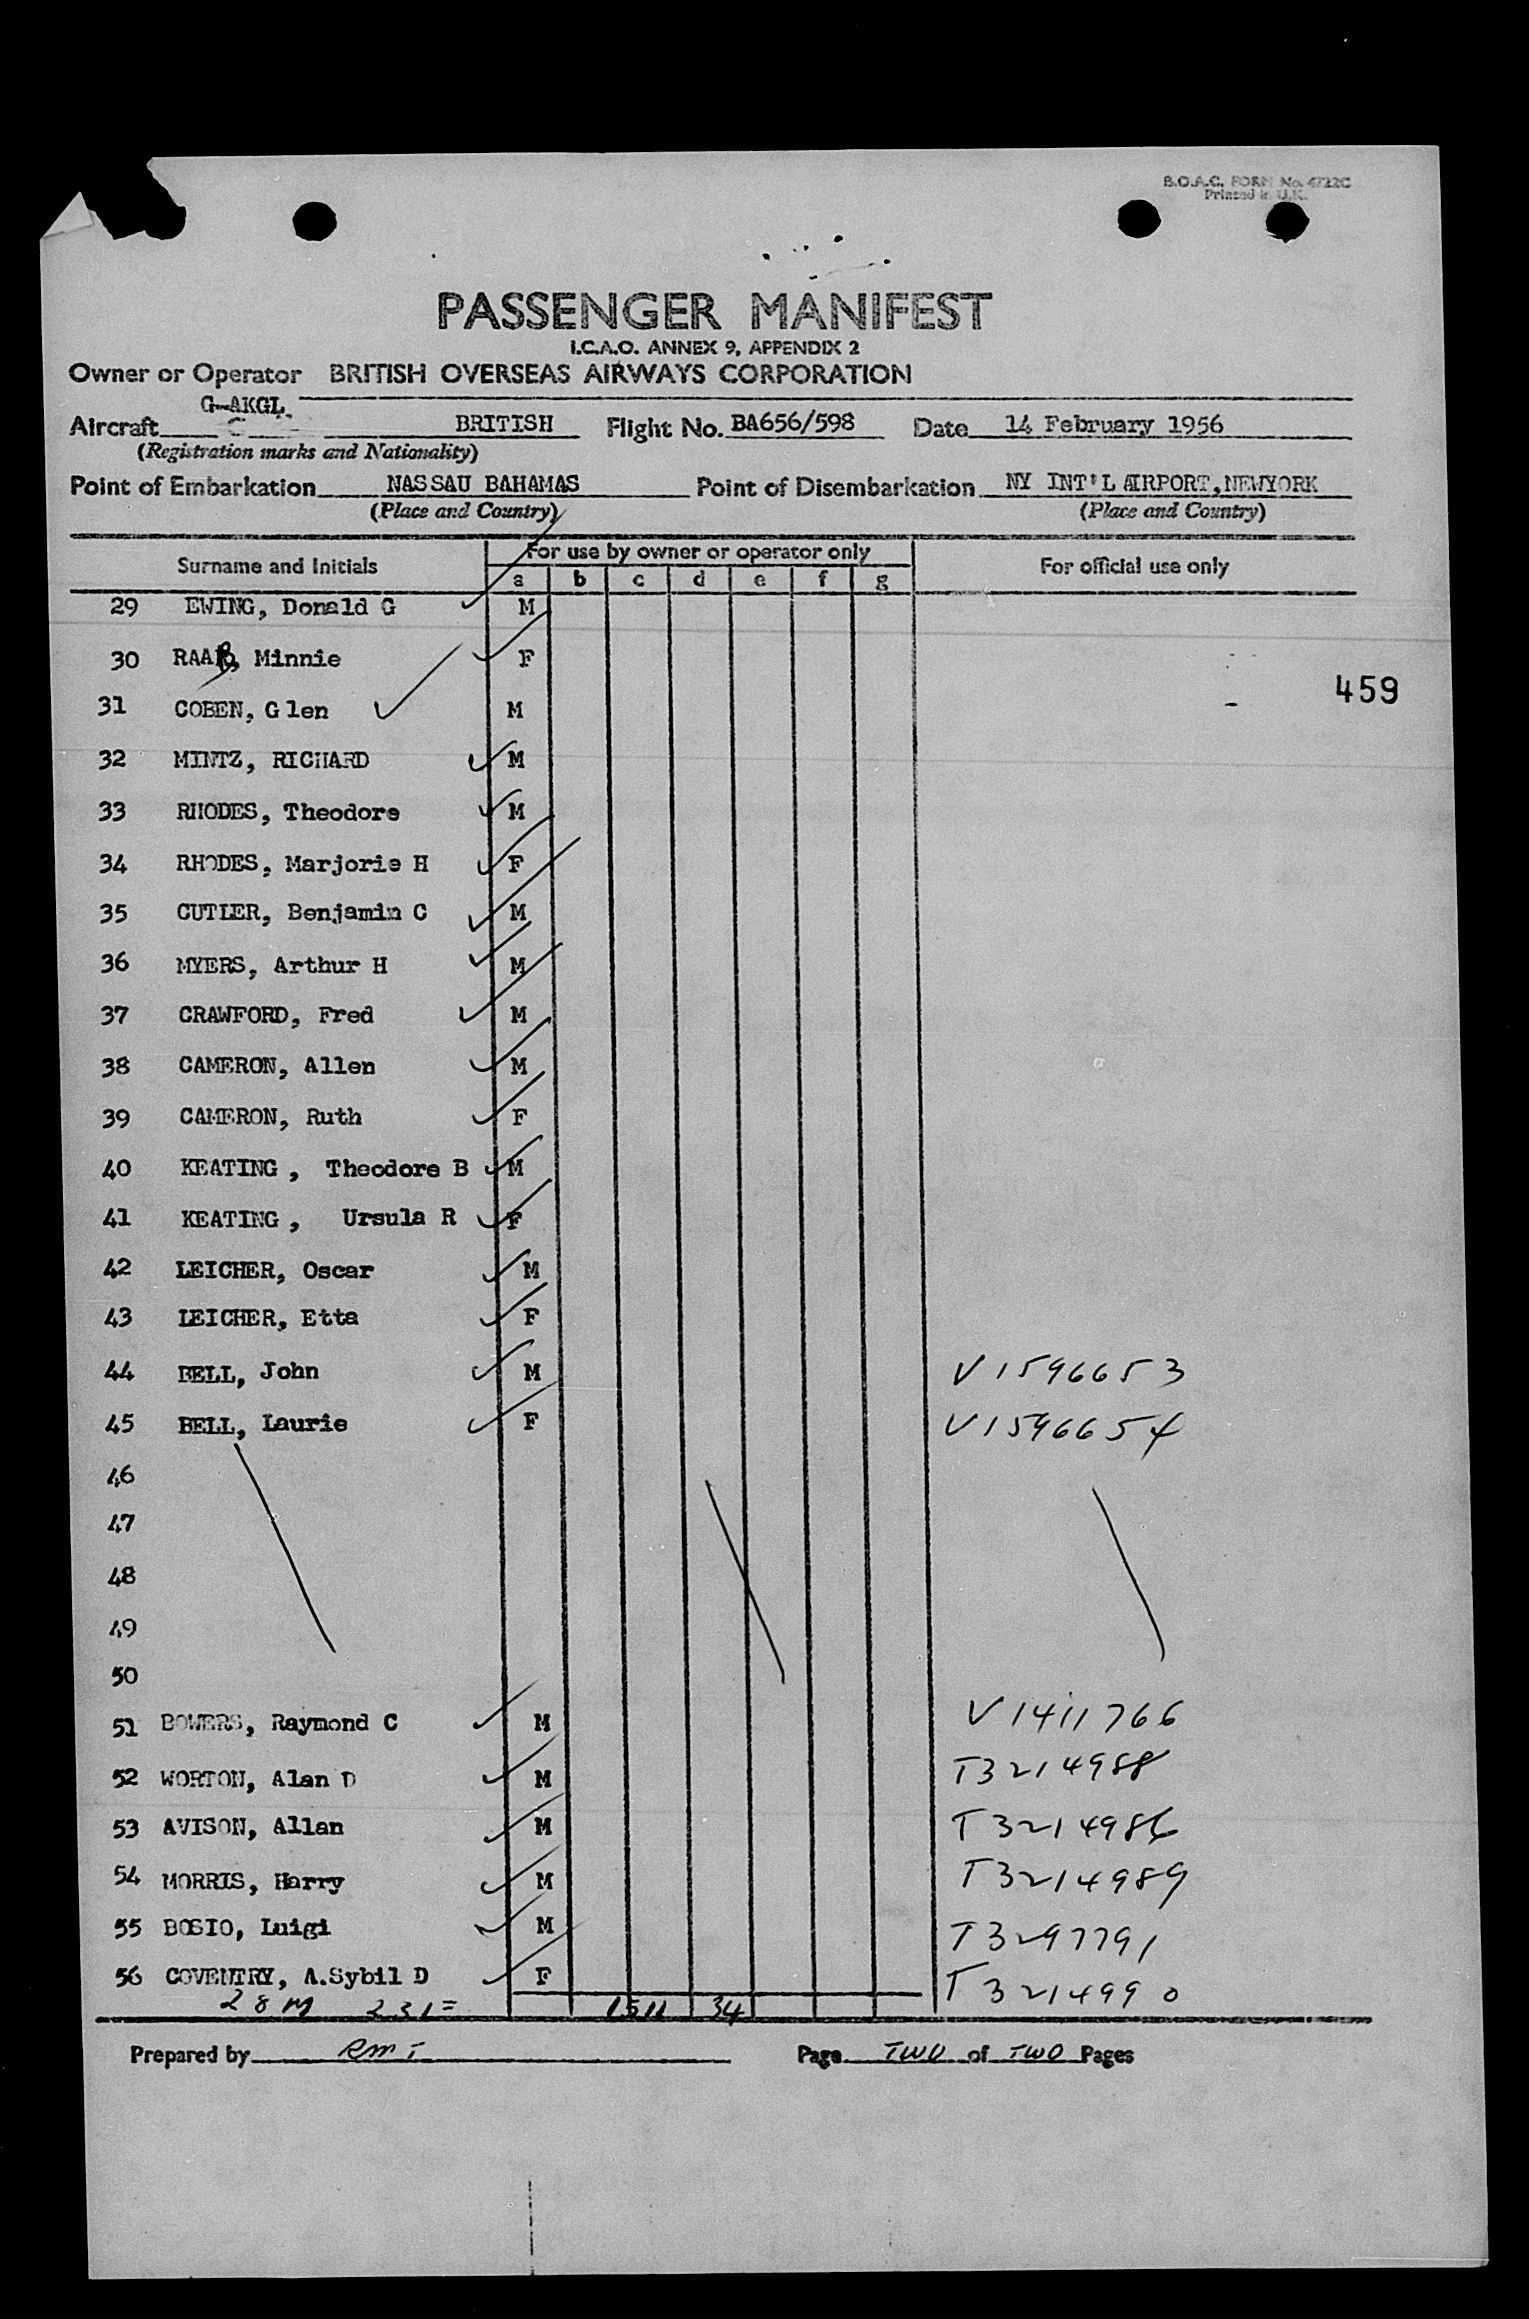 B.O.A.C. FORM No. 4722C
Printed in U.K.
PASSENGER MANIFEST
I.C.A.O. ANNEX 9, APPENDIX 2
Owner or Operator BRITISH OVERSEAS AIRWAYS CORPORATION
G-AKGL
Aircraft BRITISH Flight No. BA656/598 Date 14 February 1956
(Registration marks and Nationality)
Point of Embarkation NASSAU BAHAMAS Point of Disembarkation NY INT'L AIRPORT, NEWYORK
(Place and Country) (Place and Country)
Surname and Initials For use by owner or operator only For official use only
a b c d e f g
29 EWING, Donald G M
30 RAAB, Minnie F
459
31 COBEN, Glen M
32 MINTZ, RICHARD M
33 RHODES, Theodore M
34 RHODES, Marjorie H F
35 CUTLER, Benjamin C M
36 MYERS, Arthur H M
37 CRAWFORD, Fred M
38 CAMERON, Allen M
39 CAMERON, Ruth F
40 KEATING, Theodore B M
41 KEATING, Ursula R F
42 LEICHER, Oscar M
43 LEICHER, Etta F
44 BELL, John M V1596653
45 BELL, Laurie F V1596654
46
47
48
49
50
51 BOWERS, Raymond C M V1411766
52 WORTON, Alan D M T3214988
53 AVISON, Allan M T3214986
54 MORRIS, Harry M T3214989
55 BOSIO, Luigi M T3297791
56 COVENTRY, A.Sybil D F T3214990
28M 231= 1511 34
Prepared by RMT Page TWO of TWO Pages